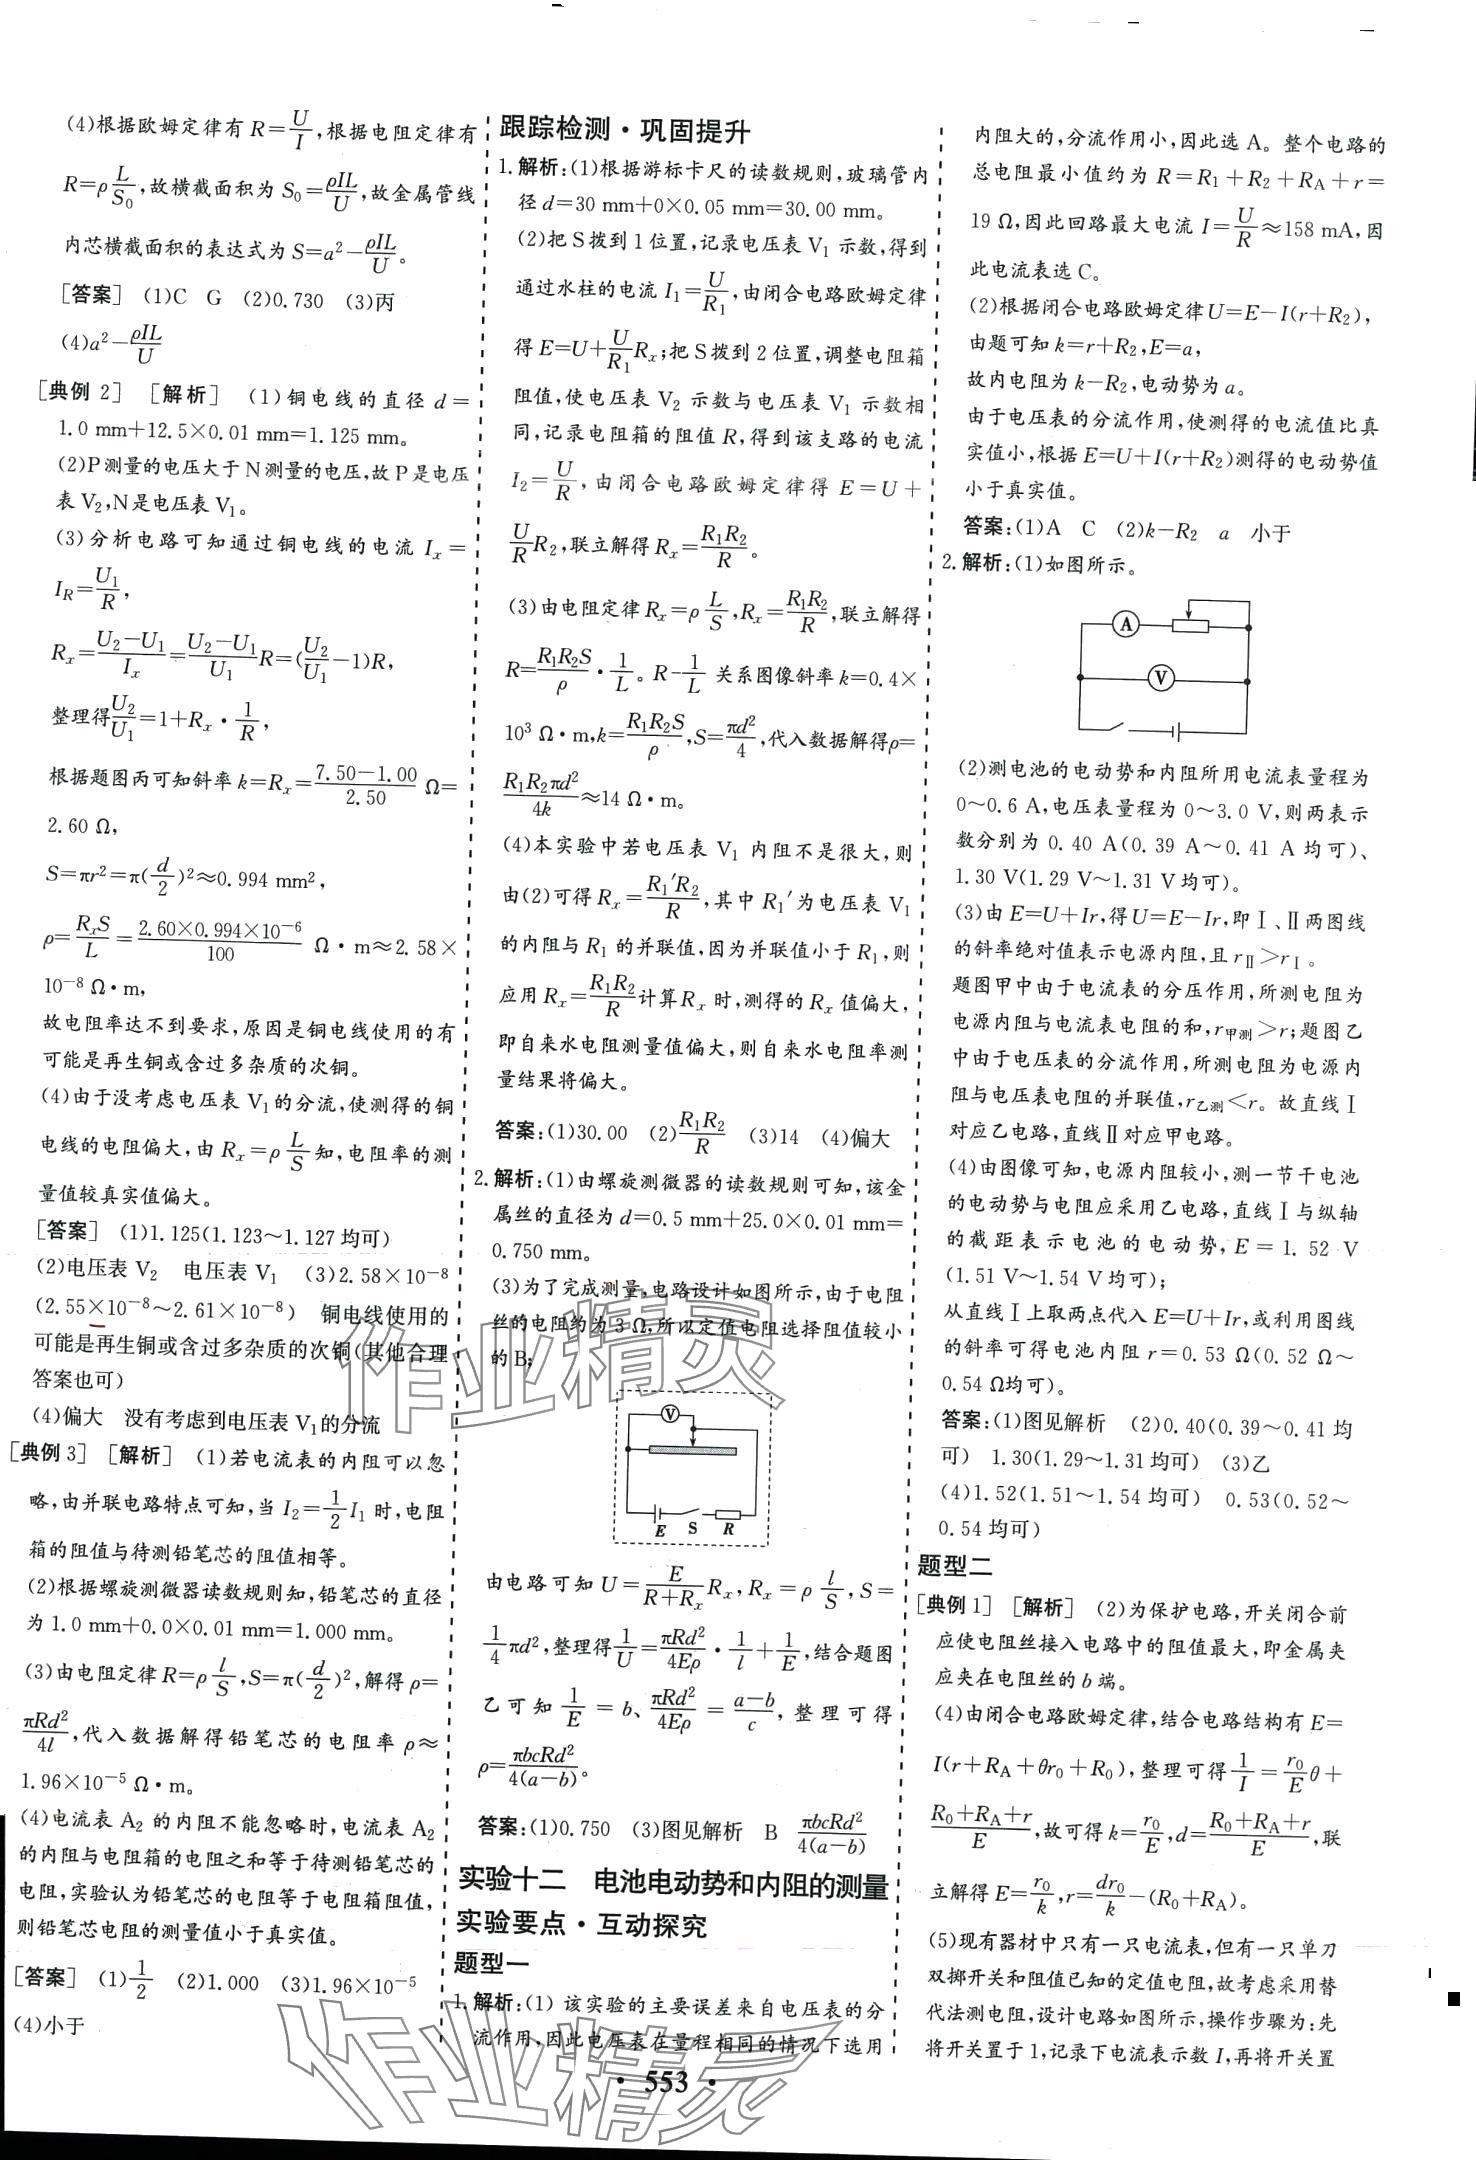 (4)根据欧姆定律有 R=U/I,根据电阻定律有
R=ρL/S₀,故横截面积为 S₀=ρIL/U,故金属管线
内芯横截面积的表达式为 S=a²-ρIL/U。
[答案] (1)C G (2)0.730 (3)丙
(4)a²-ρIL/U
[典例 2] [解析] (1)铜电线的直径 d=
1.0 mm+12.5×0.01 mm=1.125 mm。
(2)P测量的电压大于N测量的电压,故P是电压
表 V₂,N是电压表 V₁。
(3)分析电路可知通过铜电线的电流 Iₓ=
I_R=U₁/R,
Rₓ=(U₂-U₁)/Iₓ=(U₂-U₁)/U₁ R=(U₂/U₁-1)R,
整理得U₂/U₁=1+Rₓ·1/R,
根据题图丙可知斜率 k=Rₓ=(7.50-1.00)/2.50 Ω=
2.60 Ω,
S=πr²=π(d/2)²≈0.994 mm²,
ρ=RₓS/L=(2.60×0.994×10⁻⁶)/100 Ω·m≈2.58×
10⁻⁸ Ω·m,
故电阻率达不到要求,原因是铜电线使用的有
可能是再生铜或含过多杂质的次铜。
(4)由于没考虑电压表 V₁的分流,使测得的铜
电线的电阻偏大,由 Rₓ=ρL/S知,电阻率的测
量值较真实值偏大。
[答案] (1)1.125(1.123～1.127均可)
(2)电压表 V₂ 电压表 V₁ (3)2.58×10⁻⁸
(2.55×10⁻⁸～2.61×10⁻⁸) 铜电线使用的
可能是再生铜或含过多杂质的次铜(其他合理
答案也可)
(4)偏大 没有考虑到电压表 V₁的分流
[典例 3] [解析] (1)若电流表的内阻可以忽
略,由并联电路特点可知,当 I₂=1/2 I₁ 时,电阻
箱的阻值与待测铅笔芯的阻值相等。
(2)根据螺旋测微器读数规则知,铅笔芯的直径
为 1.0 mm+0.0×0.01 mm=1.000 mm。
(3)由电阻定律 R=ρl/S,S=π(d/2)²,解得 ρ=
πRd²/4l,代入数据解得铅笔芯的电阻率 ρ≈
1.96×10⁻⁵ Ω·m。
(4)电流表 A₂ 的内阻不能忽略时,电流表 A₂
的内阻与电阻箱的电阻之和等于待测铅笔芯的
电阻,实验认为铅笔芯的电阻等于电阻箱阻值,
则铅笔芯电阻的测量值小于真实值。
[答案] (1)1/2 (2)1.000 (3)1.96×10⁻⁵
(4)小于
跟踪检测·巩固提升
1.解析:(1)根据游标卡尺的读数规则,玻璃管内
径 d=30 mm+0×0.05 mm=30.00 mm。
(2)把S拨到1位置,记录电压表 V₁ 示数,得到
通过水柱的电流 I₁=U/R₁,由闭合电路欧姆定律
得 E=U+U/R₁ Rₓ;把S拨到2位置,调整电阻箱
阻值,使电压表 V₂ 示数与电压表 V₁ 示数相
同,记录电阻箱的阻值 R,得到该支路的电流
I₂=U/R,由闭合电路欧姆定律得 E=U+
U/R R₂,联立解得 Rₓ=R₁R₂/R。
(3)由电阻定律 Rₓ=ρL/S,Rₓ=R₁R₂/R,联立解得
R=R₁R₂S/ρ·1/L。R-1/L 关系图像斜率 k=0.4×
10³ Ω·m,k=R₁R₂S/ρ,S=πd²/4,代入数据解得ρ=
R₁R₂πd²/4k≈14 Ω·m。
(4)本实验中若电压表 V₁ 内阻不是很大,则
由(2)可得 Rₓ=R₁′R₂/R,其中 R₁′为电压表 V₁
的内阻与 R₁ 的并联值,因为并联值小于 R₁,则
应用 Rₓ=R₁R₂/R计算 Rₓ 时,测得的 Rₓ 值偏大,
即自来水电阻测量值偏大,则自来水电阻率测
量结果将偏大。
答案:(1)30.00 (2)R₁R₂/R (3)14 (4)偏大
2.解析:(1)由螺旋测微器的读数规则可知,该金
属丝的直径为 d=0.5 mm+25.0×0.01 mm=
0.750 mm。
(3)为了完成测量,电路设计如图所示,由于电阻
丝的电阻约为3 Ω,所以定值电阻选择阻值较小
的 B;
V
E S R
由电路可知 U=E/(R+Rₓ) Rₓ,Rₓ=ρl/S,S=
1/4 πd²,整理得1/U=πRd²/4Eρ·1/l+1/E,结合题图
乙可知 1/E=b、πRd²/4Eρ=(a-b)/c,整理可得
ρ=πbcRd²/4(a-b)。
答案:(1)0.750 (3)图见解析 B πbcRd²/4(a-b)
实验十二 电池电动势和内阻的测量
实验要点·互动探究
题型一
1.解析:(1)该实验的主要误差来自电压表的分
流作用,因此电压表在量程相同的情况下选用
内阻大的,分流作用小,因此选 A。整个电路的
总电阻最小值约为 R=R₁+R₂+R_A+r=
19 Ω,因此回路最大电流 I=U/R≈158 mA,因
此电流表选C。
(2)根据闭合电路欧姆定律U=E-I(r+R₂),
由题可知 k=r+R₂,E=a,
故内电阻为 k-R₂,电动势为 a。
由于电压表的分流作用,使测得的电流值比真
实值小,根据 E=U+I(r+R₂)测得的电动势值
小于真实值。
答案:(1)A C (2)k-R₂ a 小于
2.解析:(1)如图所示。
A
V
(2)测电池的电动势和内阻所用电流表量程为
0～0.6 A,电压表量程为 0～3.0 V,则两表示
数分别为 0.40 A(0.39 A～0.41 A 均可)、
1.30 V(1.29 V～1.31 V均可)。
(3)由 E=U+Ir,得U=E-Ir,即Ⅰ、Ⅱ两图线
的斜率绝对值表示电源内阻,且 rⅡ>rⅠ。
题图甲中由于电流表的分压作用,所测电阻为
电源内阻与电流表电阻的和,r甲测>r;题图乙
中由于电压表的分流作用,所测电阻为电源内
阻与电压表电阻的并联值,r乙测<r。故直线Ⅰ
对应乙电路,直线Ⅱ对应甲电路。
(4)由图像可知,电源内阻较小,测一节干电池
的电动势与电阻应采用乙电路,直线Ⅰ与纵轴
的截距表示电池的电动势,E=1.52 V
(1.51 V～1.54 V均可);
从直线Ⅰ上取两点代入 E=U+Ir,或利用图线
的斜率可得电池内阻 r=0.53 Ω(0.52 Ω～
0.54 Ω均可)。
答案:(1)图见解析 (2)0.40(0.39～0.41均
可) 1.30(1.29～1.31均可) (3)乙
(4)1.52(1.51～1.54均可) 0.53(0.52～
0.54均可)
题型二
[典例 1] [解析] (2)为保护电路,开关闭合前
应使电阻丝接入电路中的阻值最大,即金属夹
应夹在电阻丝的 b 端。
(4)由闭合电路欧姆定律,结合电路结构有 E=
I(r+R_A+θr₀+R₀),整理可得1/I=r₀/E θ+
(R₀+R_A+r)/E,故可得 k=r₀/E,d=(R₀+R_A+r)/E,联
立解得 E=r₀/k,r=dr₀/k-(R₀+R_A)。
(5)现有器材中只有一只电流表,但有一只单刀
双掷开关和阻值已知的定值电阻,故考虑采用替
代法测电阻,设计电路如图所示,操作步骤为:先
将开关置于1,记录下电流表示数 I,再将开关置
·553·
作业精灵
作业精灵